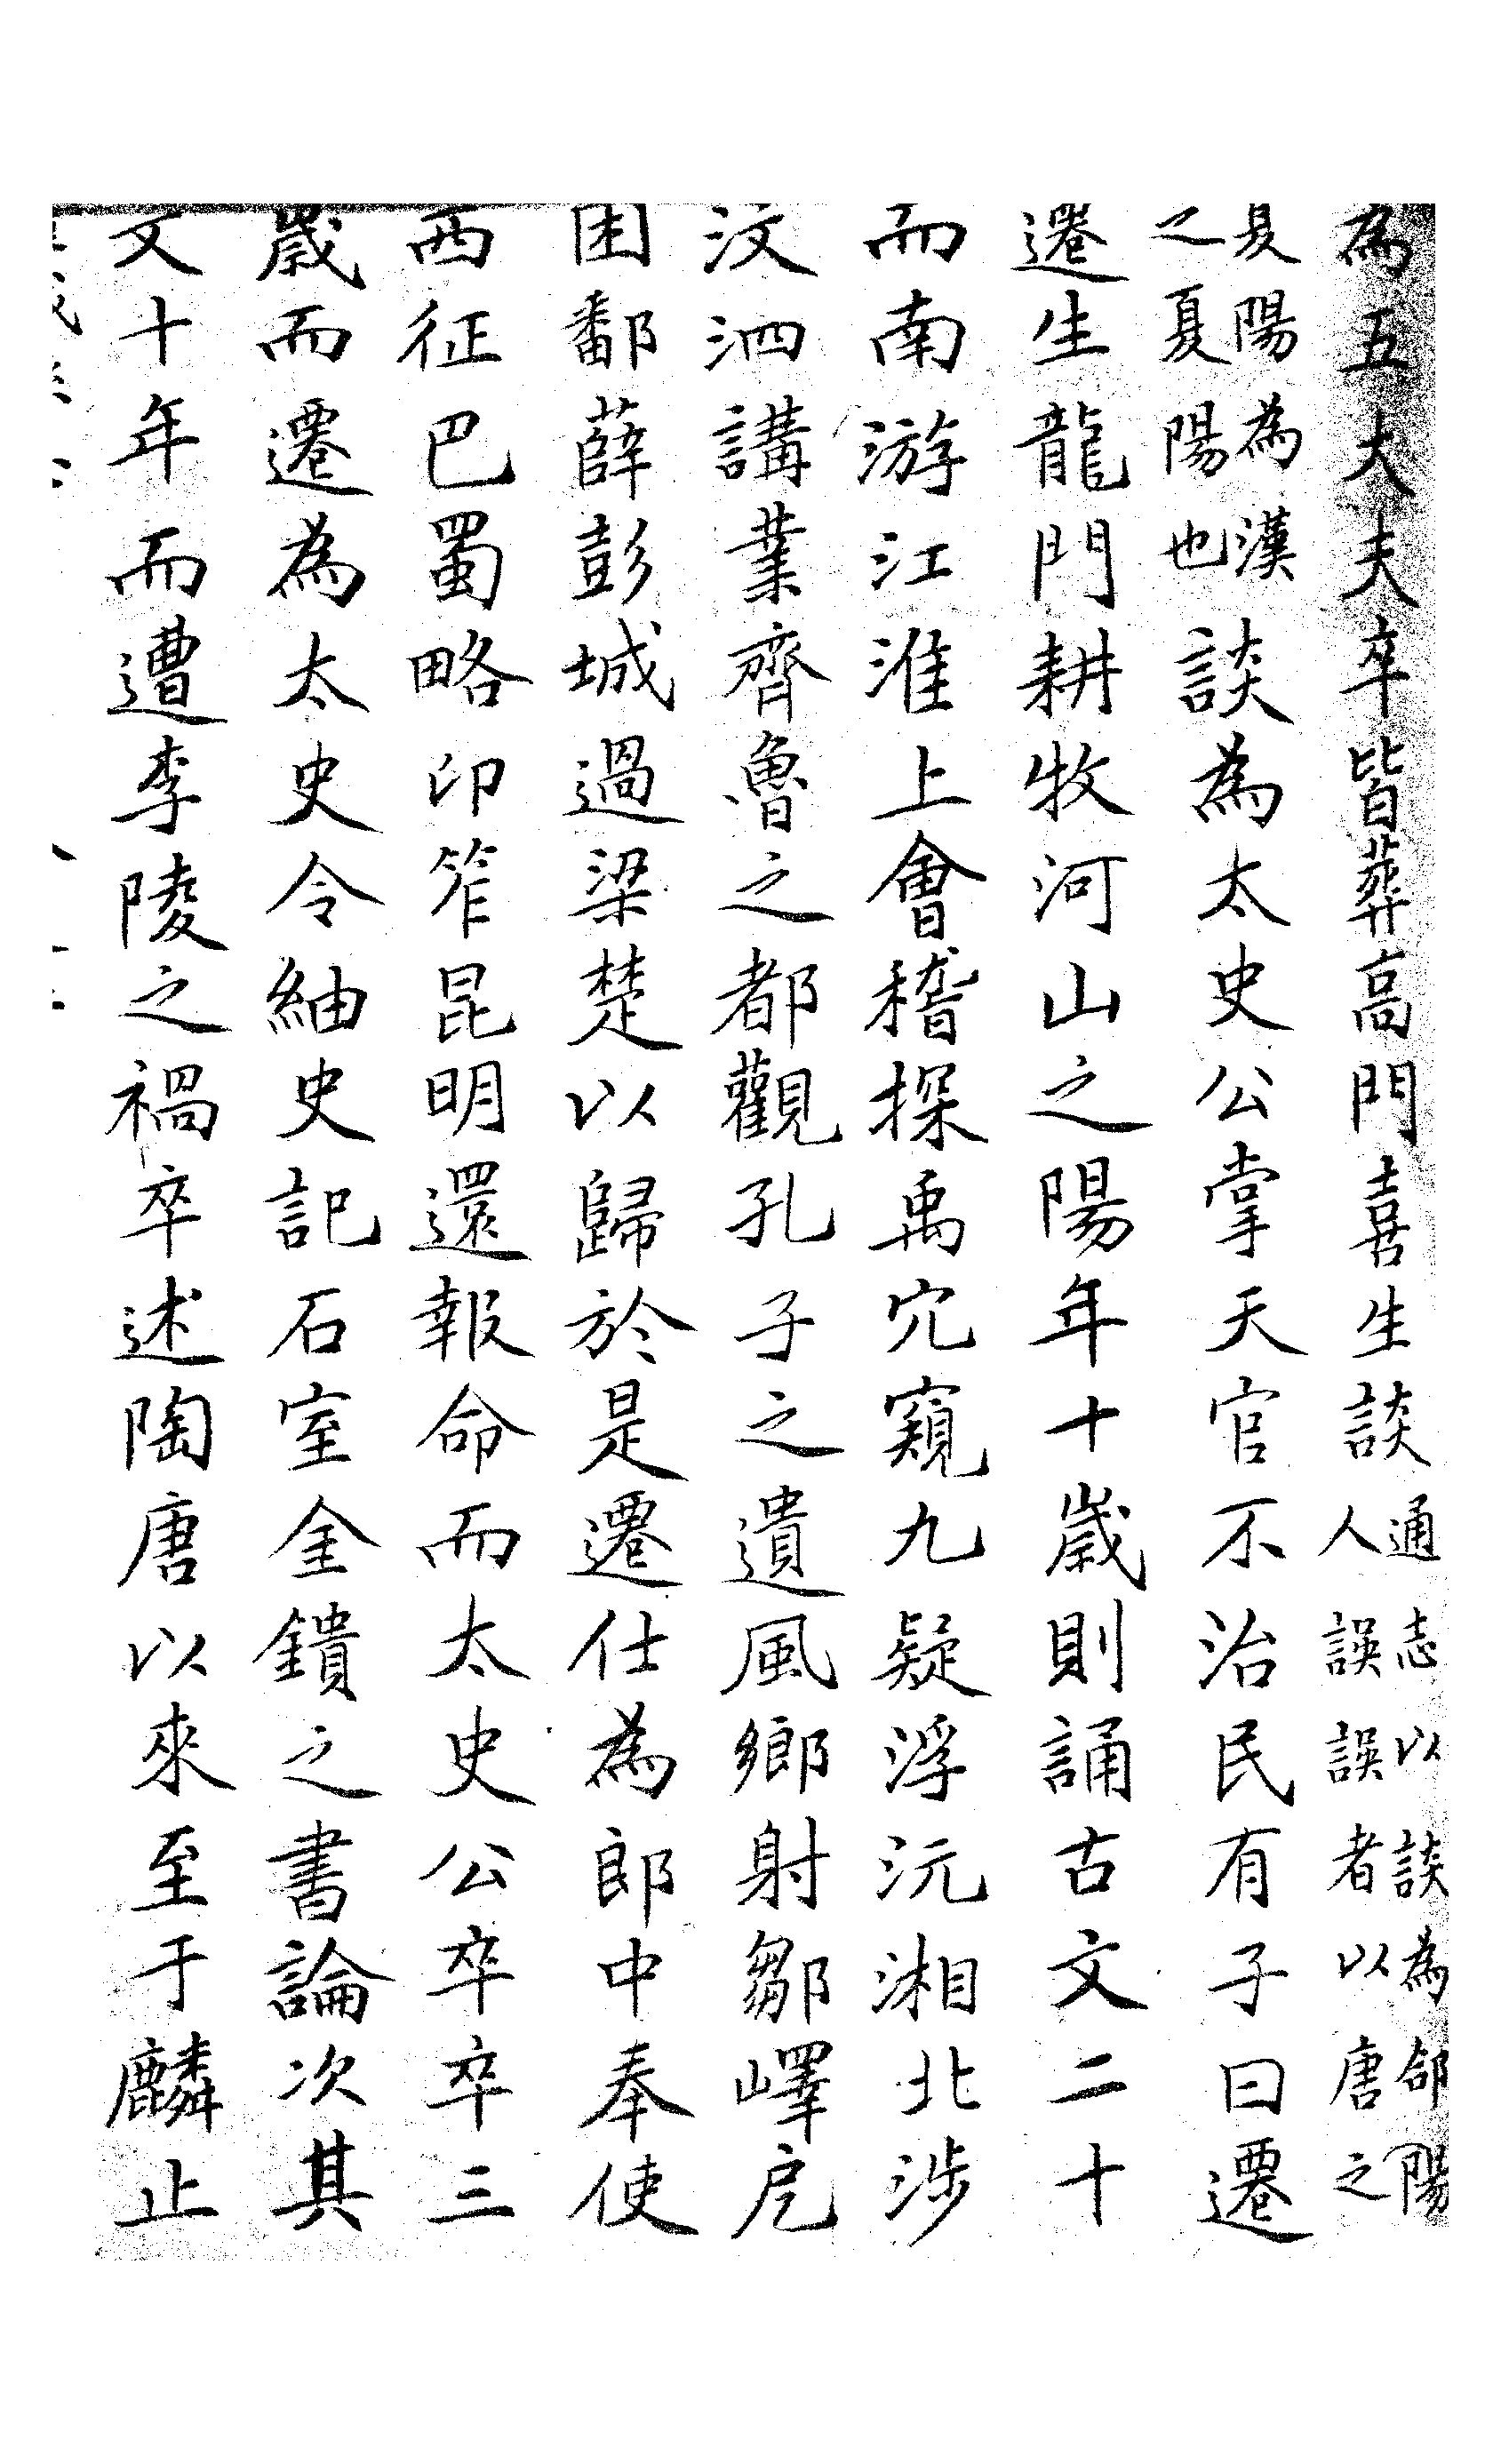 為五大夫卒皆葬高門喜生談通志以談為郃陽人誤誤者以唐之
夏陽為漢之夏陽也談為太史公掌天官不治民有子曰遷
遷生龍門耕牧河山之陽年十歲則誦古文二十
而南游江淮上會稽探禹穴窺九疑浮沅湘北涉
汶泗講業齊魯之都觀孔子之遺風鄉射鄒嶧戹
困鄱薛彭城過梁楚以歸於是遷仕為郎中奉使
西征巴蜀略卬笮昆明還報命而太史公卒卒三
歲而遷為太史令紬史記石室金鐀之書論次其
文十年而遭李陵之禍卒述陶唐以來至于麟止